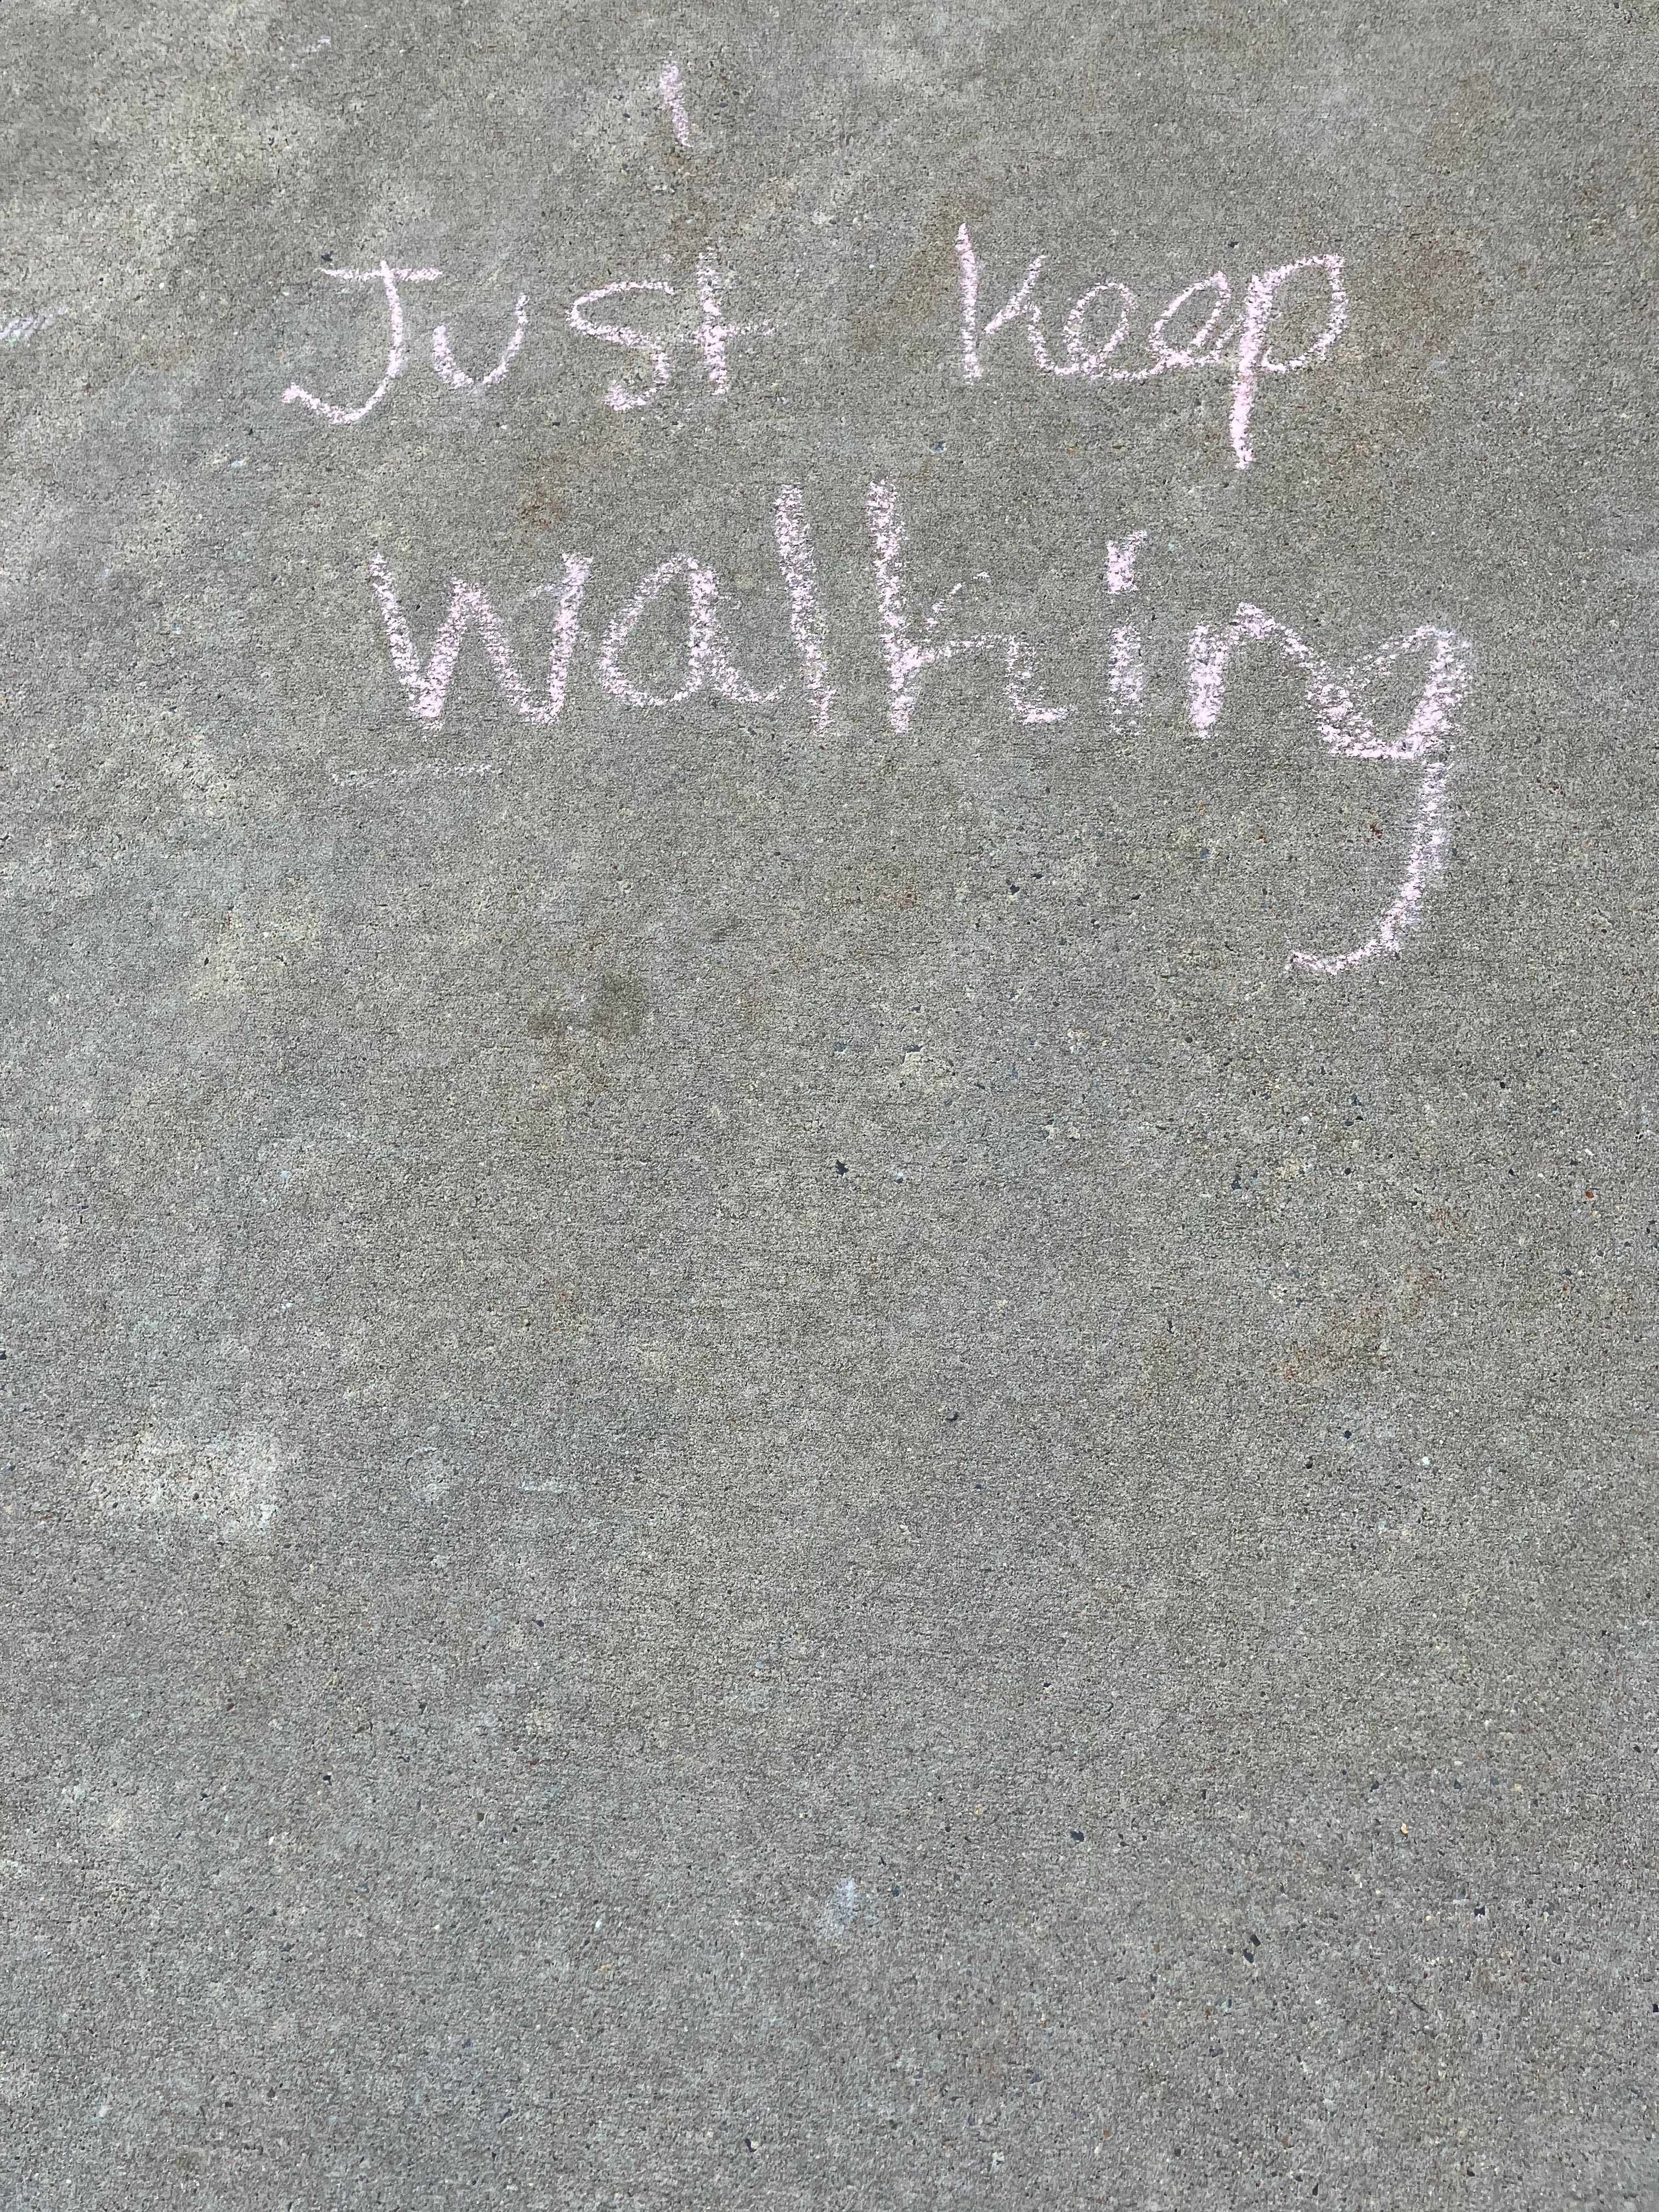 Just keep
walking